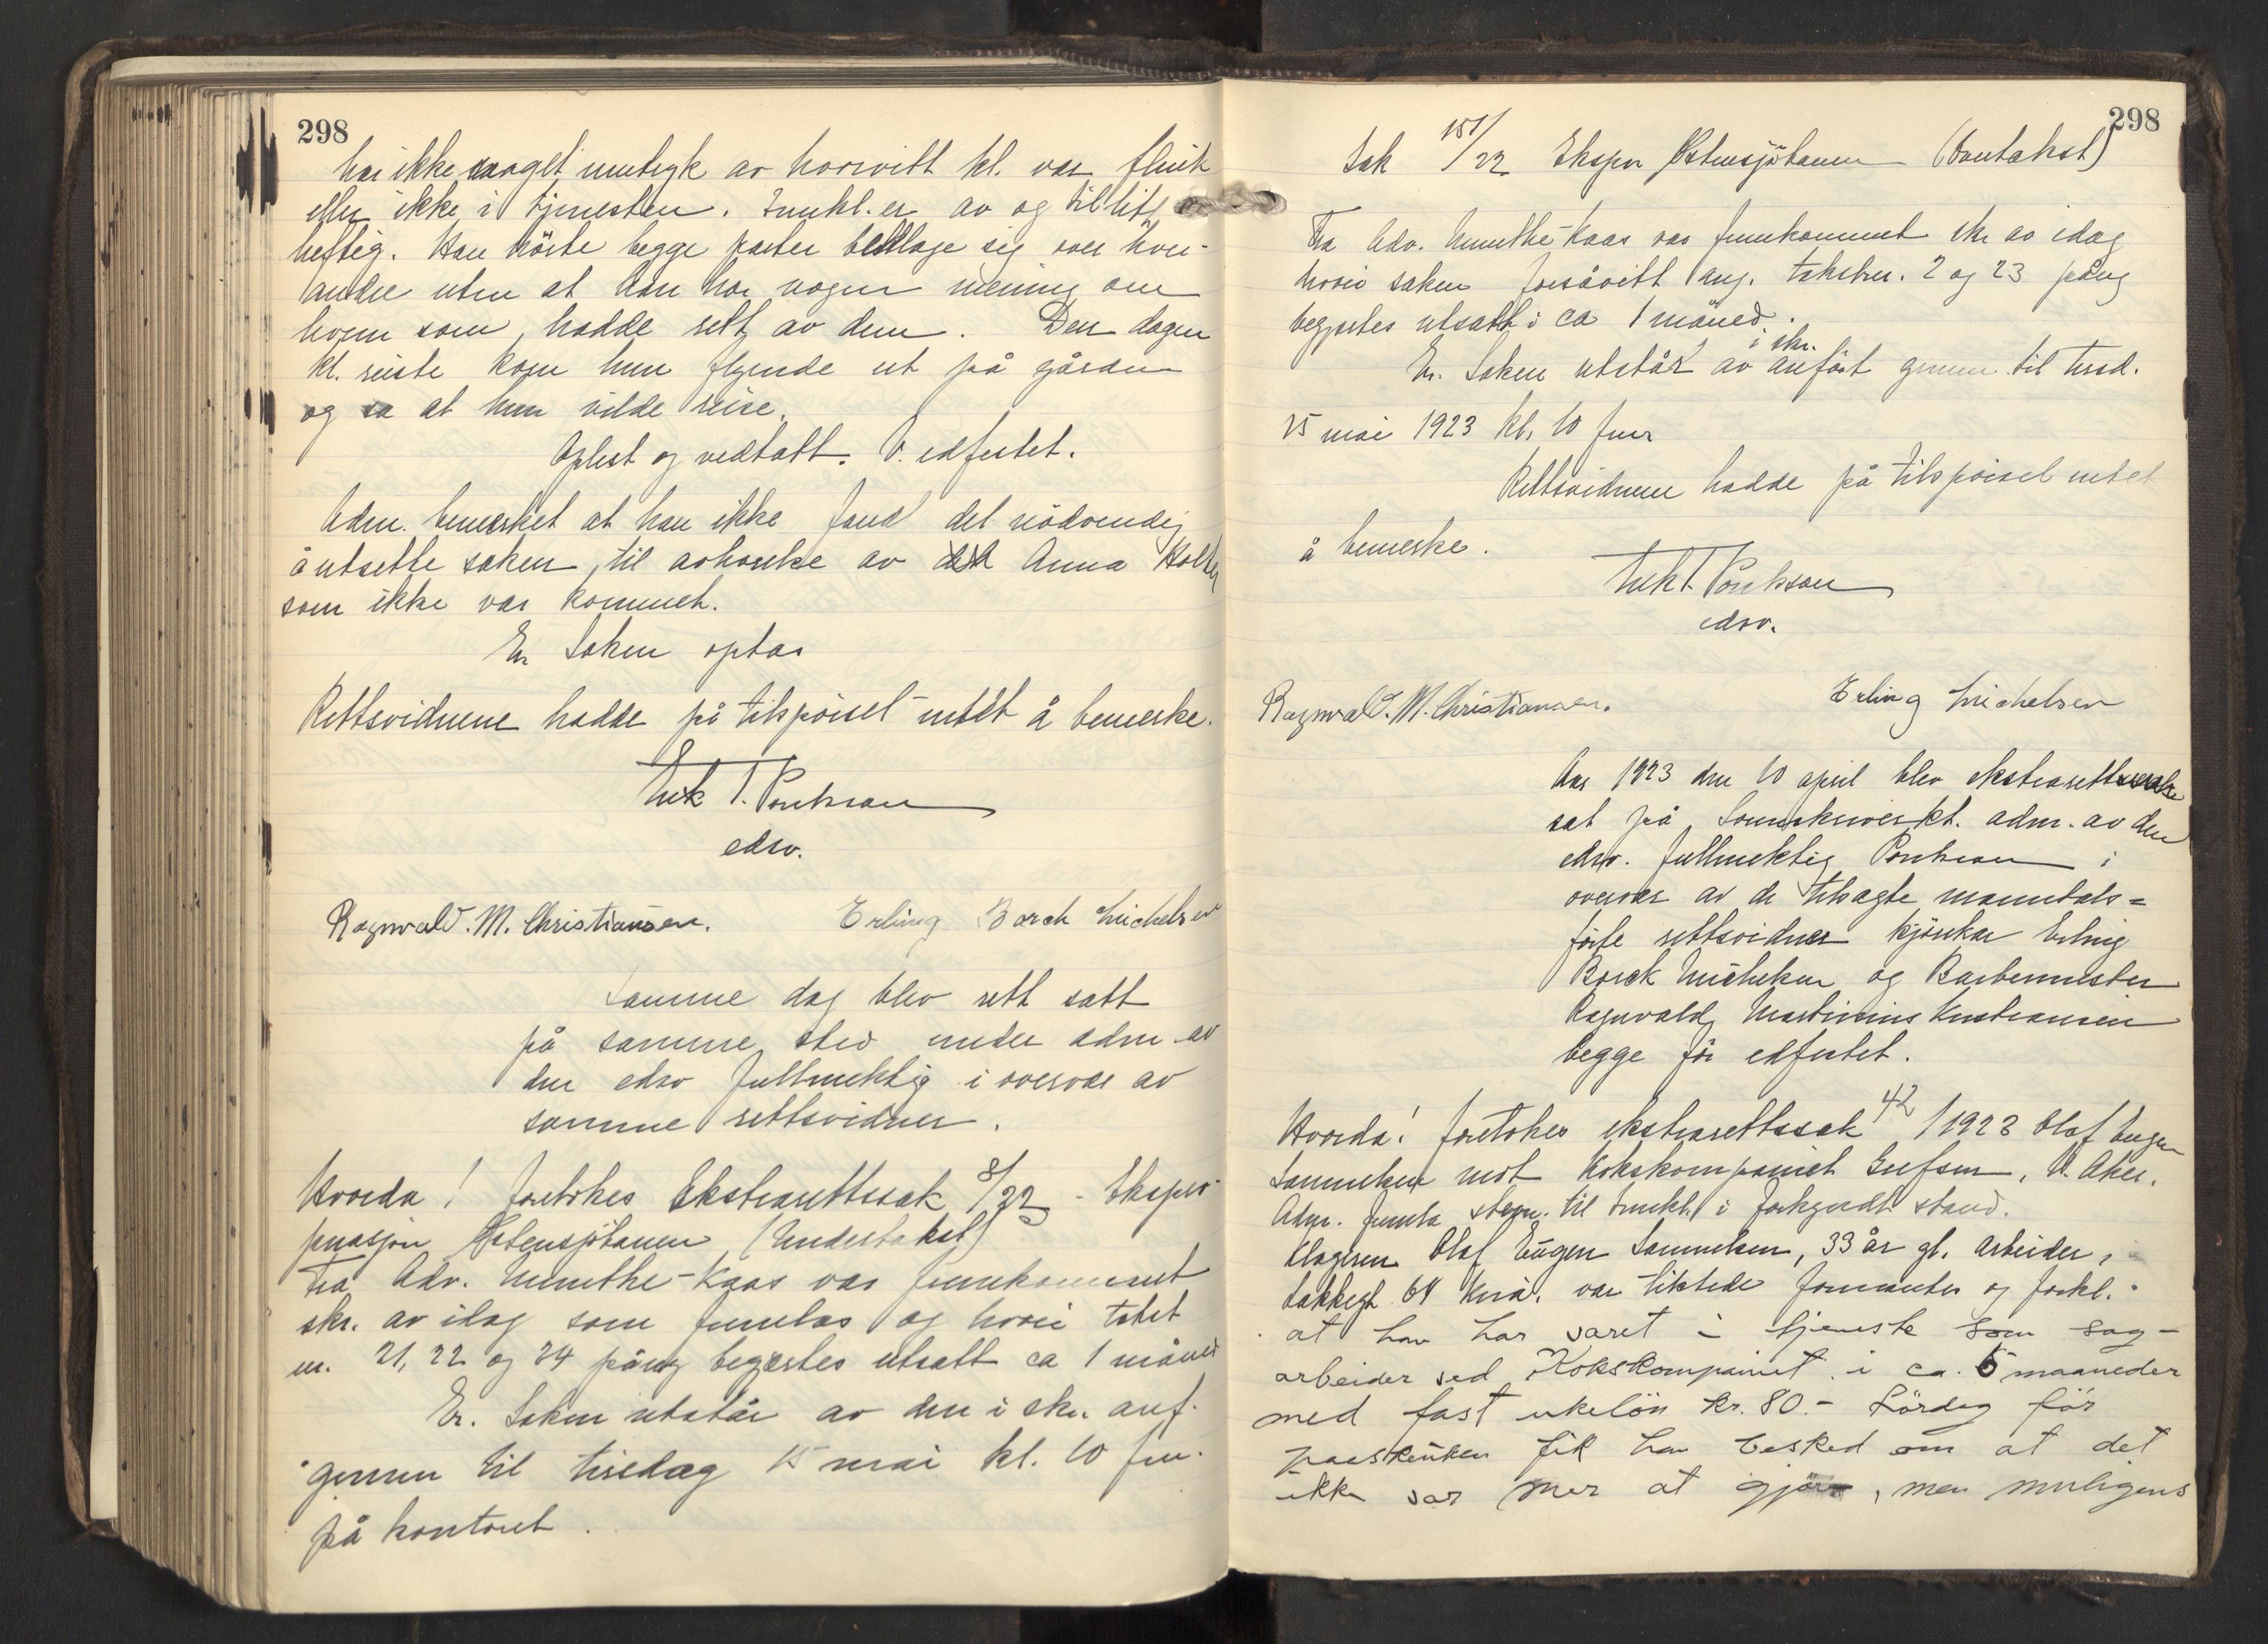 298
har ikke noget inntryk av hvorvitt kl. var flink
eller ikke i tjenesten. Innkl. er av og til litt
heftig. Han hørte begge parter beklage sig over hver-
andre uten at han har nogen mening om
hvem som hadde rett av dem. Den dagen
kl. reiste kom hun flyende ut på gården
og sa at hun vilde reise.
Oplest og vedtatt. V. edfestet.
Adm. bemerket at han ikke fand det nödvendig
å utsette saken til avhørelse av Anna Holter
som ikke var kommet.
Er. Saken optas
Rettsvidnene hadde på tilspørsel intet å bemerke.
Erik T. Poulsson
edsv.
Ragnvald. M. Christiansen. Erling Borch Michelsen
Samme dag blev rett satt
på samme sted under adm av
den edsv fullmektig i overvær av
samme rettsvidner.
Hvorda! foretokes Ekstrarettssak 8/22 - Ekspro-
priasjon Østensjöbanen (Undertakst)
Fra Adv. Munthe-Kaas var fremkommet
skr. av idag som fremlas og hvori takst
nr. 21, 22 og 24 påny begjærtes utsatt ca 1 måned
Er. Saken utstår av den i skr. anf.
grunn til tirsdag 15 mai kl. 10 fm.
på kontoret.
298
Sak 151/22 Ekspr Østensjöbanen (Overtakst)
Fra Adv. Munthe-Kaas var fremkommet skr av idag
hvori saken forsåvitt ang. takstnr. 2 og 23 påny
begjærtes utsatt i ca 1 måned.
Er. Saken utstår av i skr. anført grunn til tirsd.
15 mai 1923 kl. 10 fm
Rettsvidnene hadde på tilspørsel intet
å bemerke.
Erik T. Poulsson
edsv.
Ragnvald. M. Christiansen. Erling Michelsen
Aar 1923 den 10 april blev ekstrarett
sat på Sorenskriverkt. adm. av den
edsv. fullmektig Poulsson i
overvær av de tilsagte manntals=
førte rettsvidner kjörekar Erling
Borck Michelsen og Barbermester
Ragnvald Martinius Kristiansen
begge før edfestet.
Hvorda! foretokes ekstrarettssak 42/1923 Olaf Eugen
Samuelsen mot Kokskompaniet Grefsen, V. Aker.
Adm. fremla stevn. til innkl. i forkyndt stand.
Klageren Olaf Eugen Samuelsen, 33 år gl. arbeider,
var tilstede formantes og forkl.
at han har været i tjeneste som sag-
arbeider ved Kokskompaniet i ca. 5 maaneder
med fast ukelön kr. 80.- Lördag för
paaskeuken fik han besked om at det
ikke var mer at gjöre, men muligens